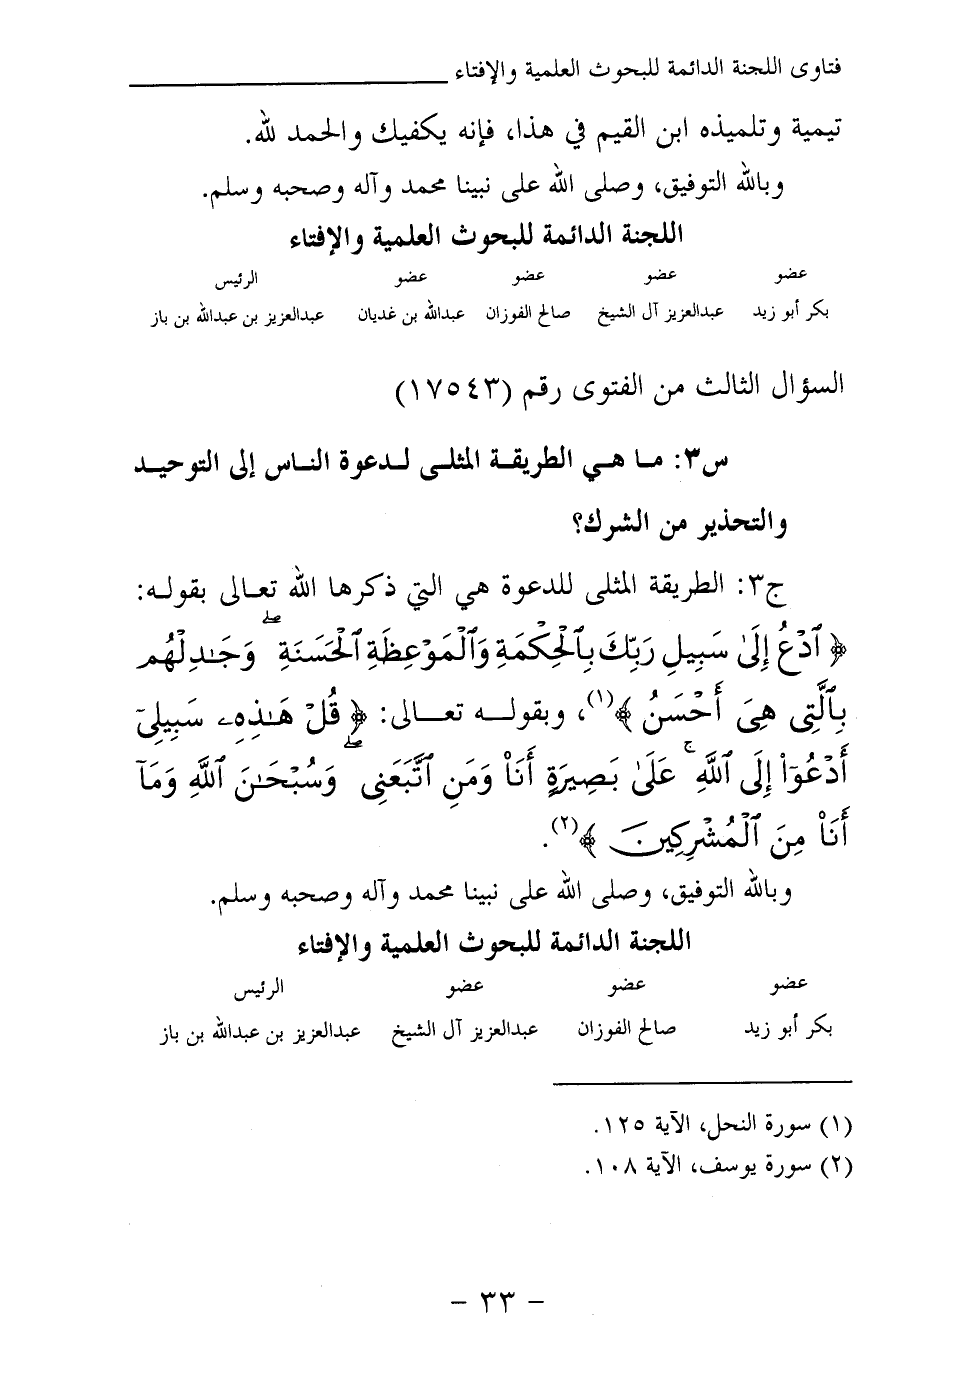 فتاوى اللجنة الدائمة للبحوث العلمية والإفتاء
تيمية وتلميذه ابن القيم في هذا، فإنه يكفيك والحمد لله.
وبالله التوفيق، وصلى الله على نبينا محمد وآله وصحبه وسلم.
اللجنة الدائمة للبحوث العلمية والإفتاء
عضو عضو عضو عضو الرئيس
بكر أبو زيد عبدالعزيز آل الشيخ صالح الفوزان عبدالله بن غديان عبدالعزيز بن عبدالله بن باز
السؤال الثالث من الفتوى رقم (١٧٥٤٣)
س٣: ما هي الطريقة المثلى لدعوة الناس إلى التوحيد
والتحذير من الشرك؟
ج٣: الطريقة المثلى للدعوة هي التي ذكرها الله تعالى بقوله:
﴿ ٱدۡعُ إِلَىٰ سَبِيلِ رَبِّكَ بِٱلۡحِكۡمَةِ وَٱلۡمَوۡعِظَةِ ٱلۡحَسَنَةِۖ وَجَٰدِلۡهُم
بِٱلَّتِي هِيَ أَحۡسَنُ ﴾(١)، وبقوله تعالى: ﴿ قُلۡ هَٰذِهِۦ سَبِيلِيٓ
أَدۡعُوٓاْ إِلَى ٱللَّهِۚ عَلَىٰ بَصِيرَةٍ أَنَا۠ وَمَنِ ٱتَّبَعَنِيۖ وَسُبۡحَٰنَ ٱللَّهِ وَمَآ
أَنَا۠ مِنَ ٱلۡمُشۡرِكِينَ ﴾(٢).
وبالله التوفيق، وصلى الله على نبينا محمد وآله وصحبه وسلم.
اللجنة الدائمة للبحوث العلمية والإفتاء
عضو عضو عضو الرئيس
بكر أبو زيد صالح الفوزان عبدالعزيز آل الشيخ عبدالعزيز بن عبدالله بن باز
(١) سورة النحل، الآية ١٢٥.
(٢) سورة يوسف، الآية ١٠٨.
- ٣٣ -